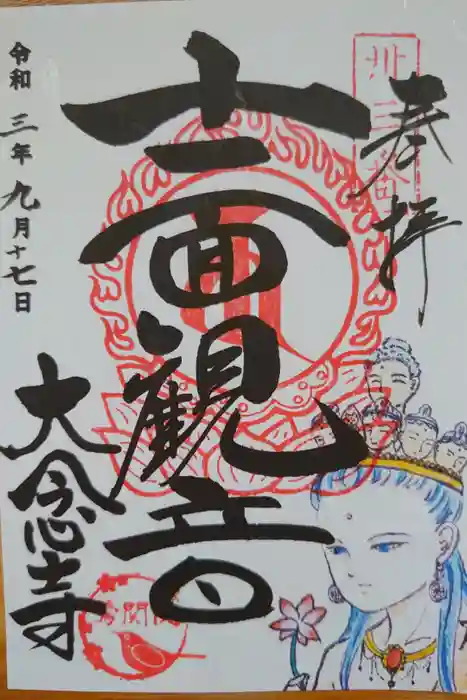 奉拝
十一面観音
令和三年九月十七日
大念寺